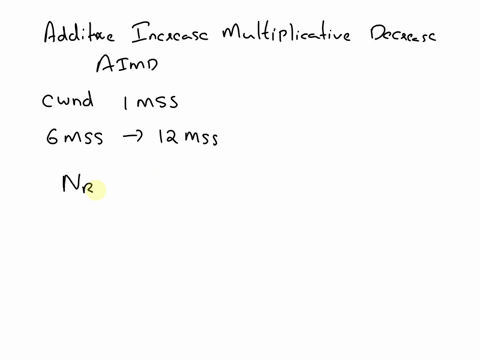 Additive Increase Multiplicative Decrease
AIMD
cwnd 1 MSS
6 MSS → 12 MSS
NR